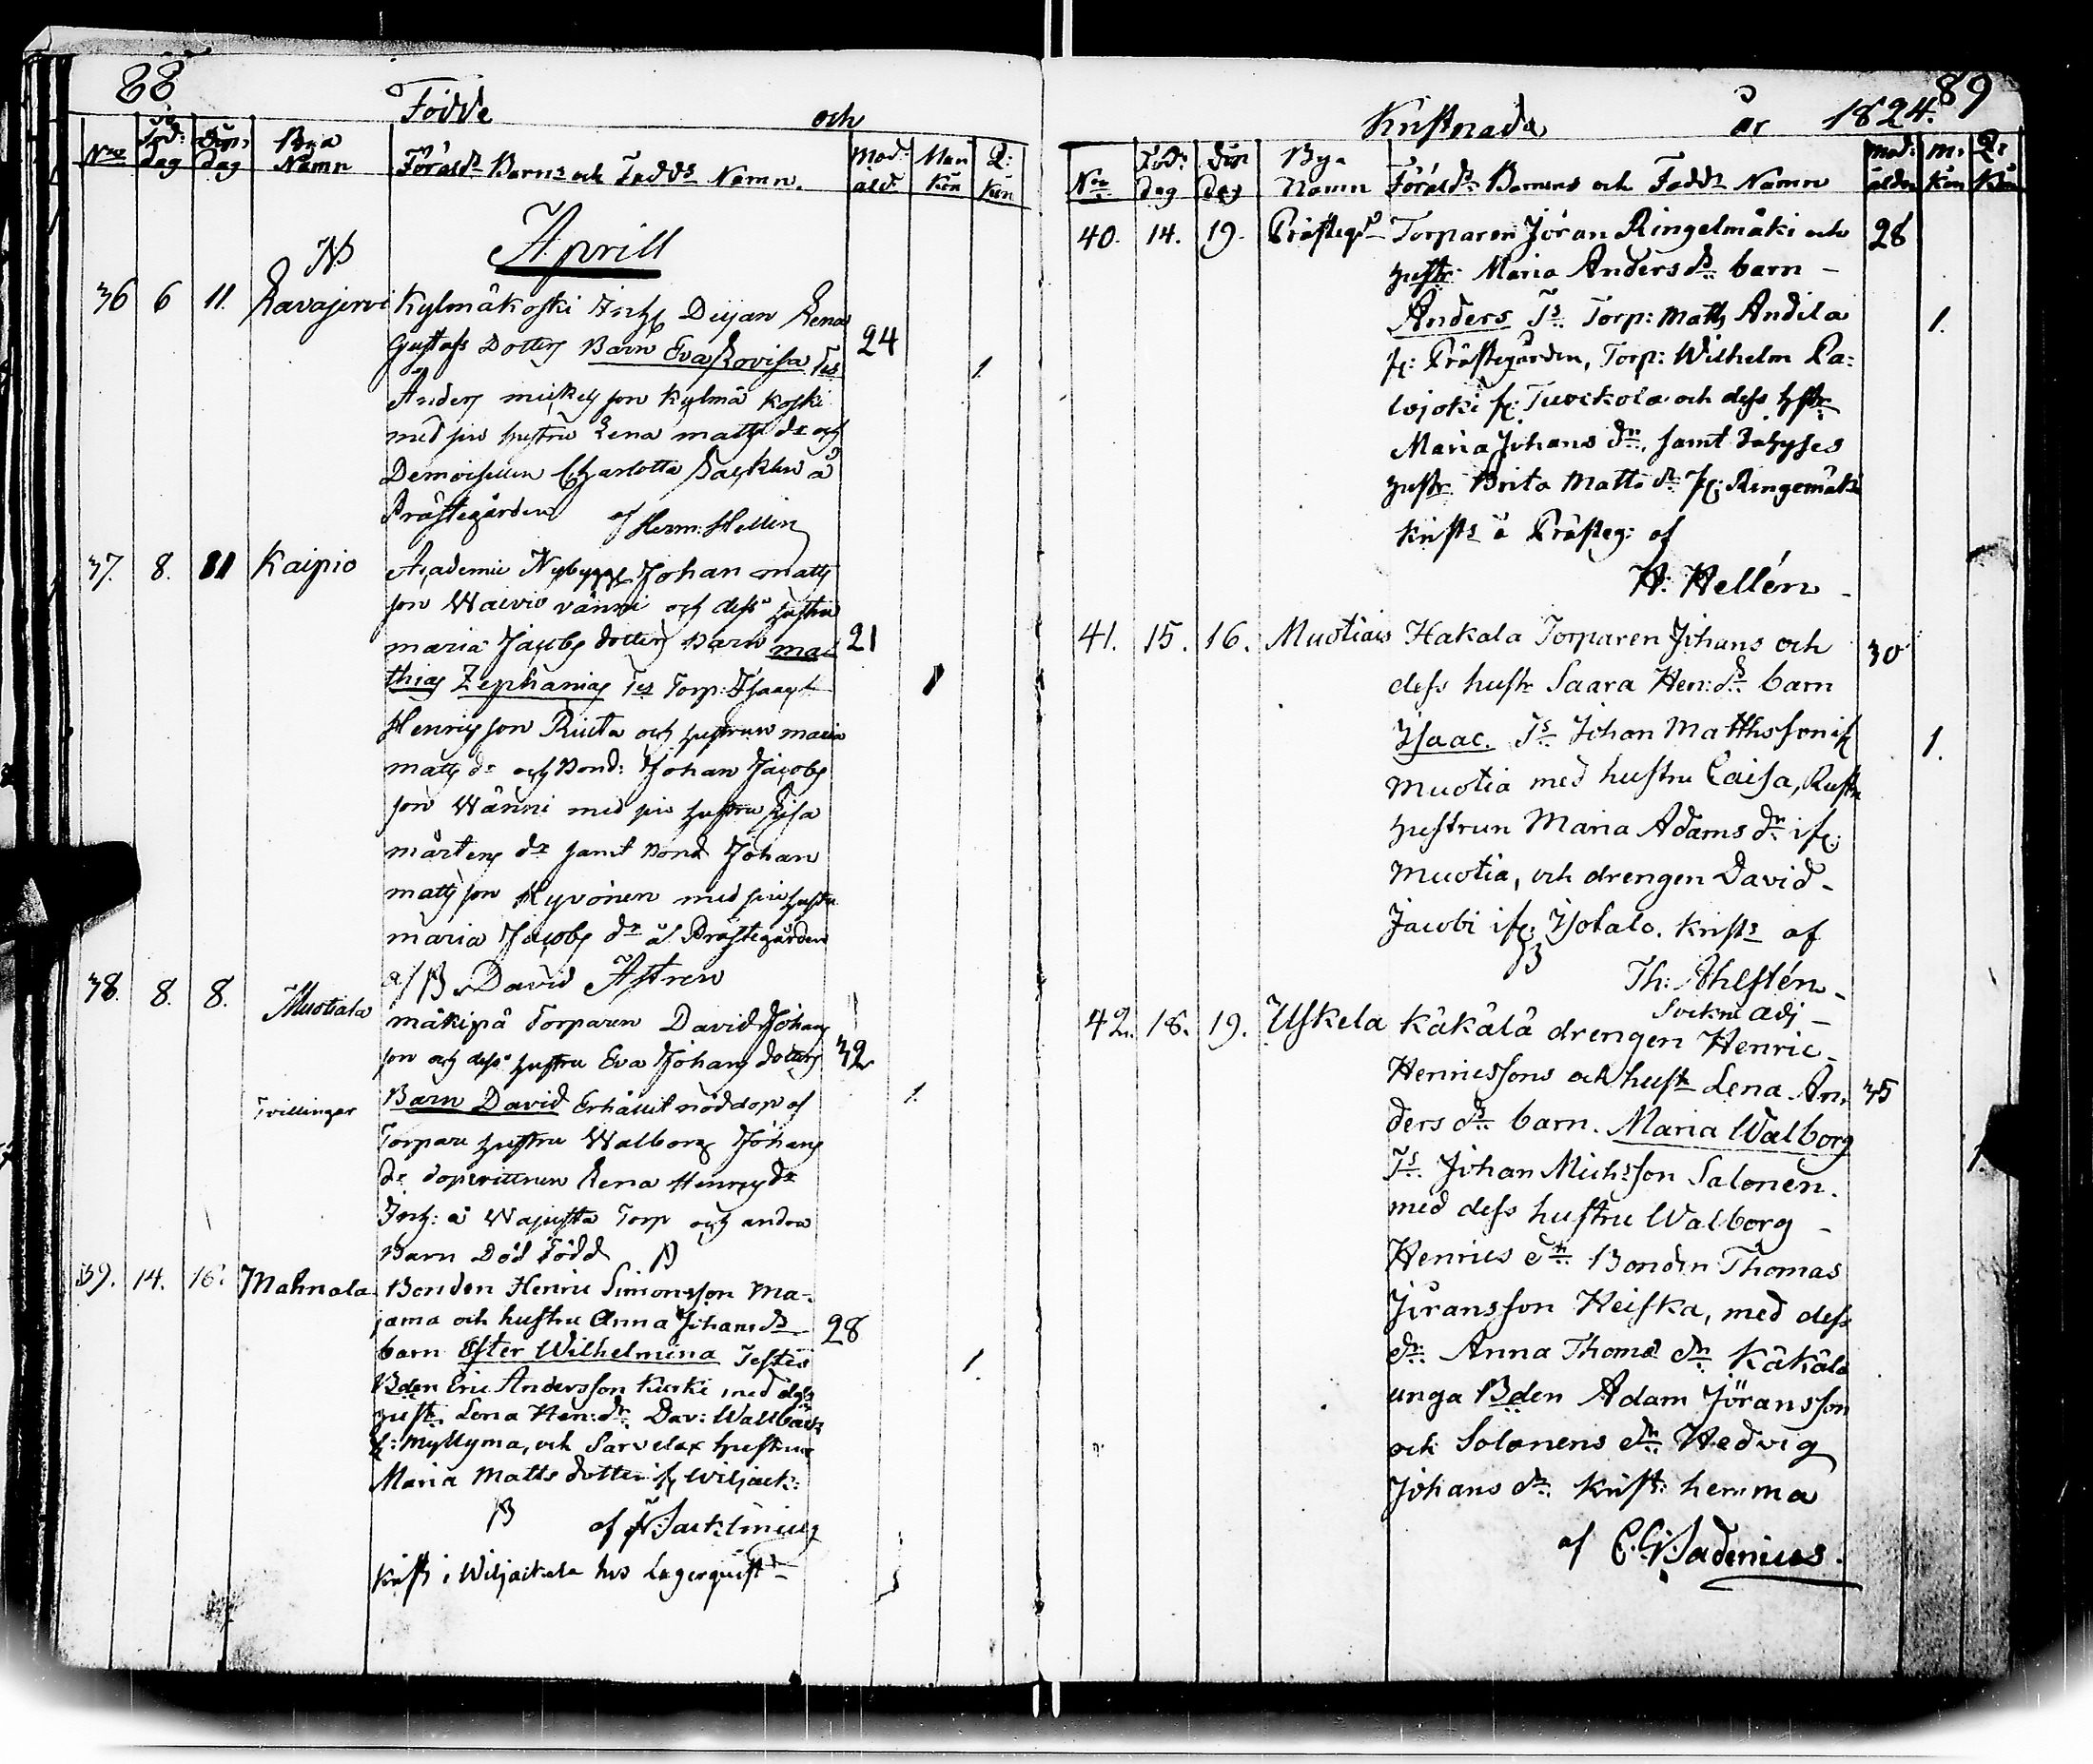 88
Födde och
Nro Föd: dag Döp: dag Bya Namn Föräldr: Barns och Fadd: Namn. Mod: åld: Man Kön Q: Kön
Aprill
36 6 11. Lavajervi Kylmäkoski Inh: Lena
Gustafs Dotters Barn Eva Lovisa Tes 24
Anders mickels son Kylmä koski 1.
med sin hustru Lena matts dr och
Demoisellen Charlotta å
Prästegården af Herm: Hellen
37. 8. 11 Kaipio Academie Nybygg: Johan matts
son vänni och dess hustru
maria Jacobs dotters Barn mat 21
thias Zephanias Tes Torp: Isaac 1
Henrics son och hustrun maria
matts dr och Bond: Johan Jacobs
son Wänni med sin hustru Lisa
mårtens dr samt Bond Johan
matts son Kyrönen med sin hustru
maria Jacobs dr å Prästegården
af David Astren
38. 8. 8. Muotiala mäkipä Torparen David Johans
son och dess hustru Eva Johans dotters 32
Tvillingar Barn David Erhållit nöddop af 1.
Torpare hustru Walborg Johans
dr Lena Henrics dr
Inh: å Torp och andra
Barn Död Född
39. 14. 16. Mahnala Bonden Henric Simonsson Ma-
jama och hustru Anna Johans dr 28
barn Ester Wilhelmina Testes
Bden Eric Andersson Kurki med dess 1.
hustr. Lena Hen: dr. Dav: Wallbäck
f: Myllyma, och Sarvelax hustrun
Maria Matts dotter f: Wiljack:
af N: Sacklinius
Krist: i Wiljackala hos Lagerquist
89
Kristnade år 1824.
Nro Föd: dag Döp dag Bya Namn Föräld: Barnens och Fadd: Namn Mod: ålder M: Kön Q: Kön
40. 14. 19. Prästegd Torparen Jöran Ringelmäki och 28
hustr: Maria Anders dr. barn –
Anders Ts. Torp: Matts Andila 1.
fr: Prästegården, Torp: Wilhelm Pa-
lojoki fr: Tuockola och dess hstr
Maria Johans dr. samt Inhyses
hustr. Brita Matts dr. fr: Ringemäki
Krist: å Prästeg: af
H: Hellén
41. 15. 16. Muotiais Hakala Torparen Johans och 30
dess hustr Saara Hen: dr. barn
Isaac. Ts. Johan Matthsson if
Muotia med hustru Caisa, Rust: 1.
hustrun Maria Adams dr. ifr.
Muotia, och drengen David
Jacobi ifr. Isotalo. Krist: af
Th: Ahlstén
Sockne adj
42. 18. 19. Uskela Käkälä drengen Henric
Henricssons och hustr Lena An- 35
ders dr. barn. Maria Walborg
Ts. Johan Michsson Salonen. 1.
med dess hustru Walborg
Henrics dr. Bonden Thomas
Jöransson Heiska, med dess
dr. Anna Thomas dr. Käkälä
unga Bden Adam Jöransson
och Solonens dr. Hedvig
Johans dr. Krist: hemma
af C. G. Sadenius.